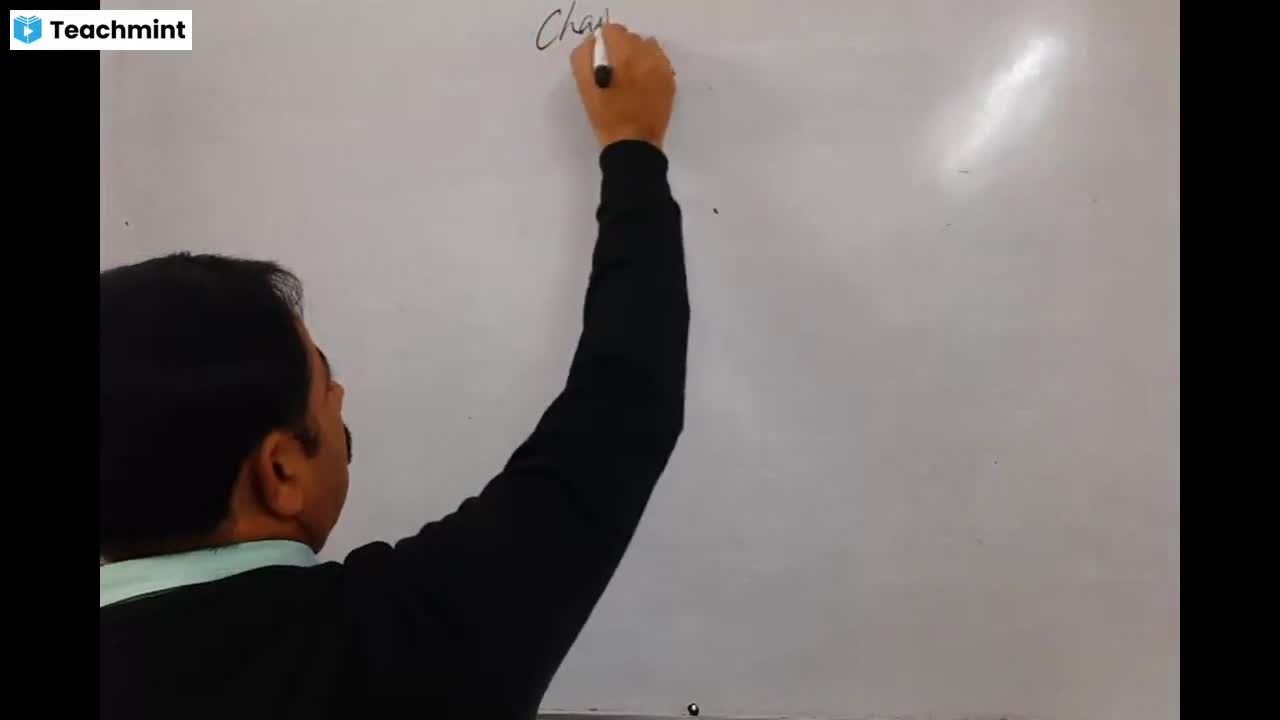 Teachmint
Cha